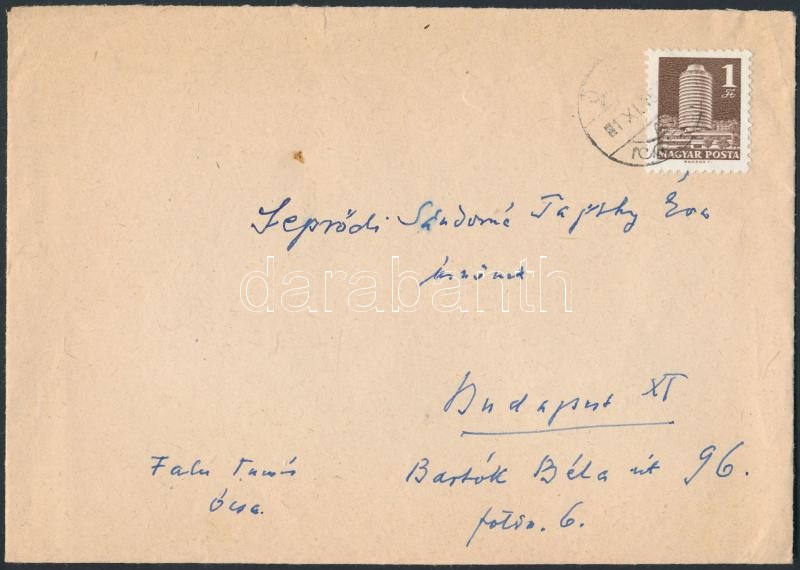 1
Ft
MAGYAR POSTA
Seprődi Sándorné Tajthy Éva
úrnőnek
darabanth
Budapest XI
Bartók Béla út 96.
fölsz. 6.
Falu Tamás
Ócsa.